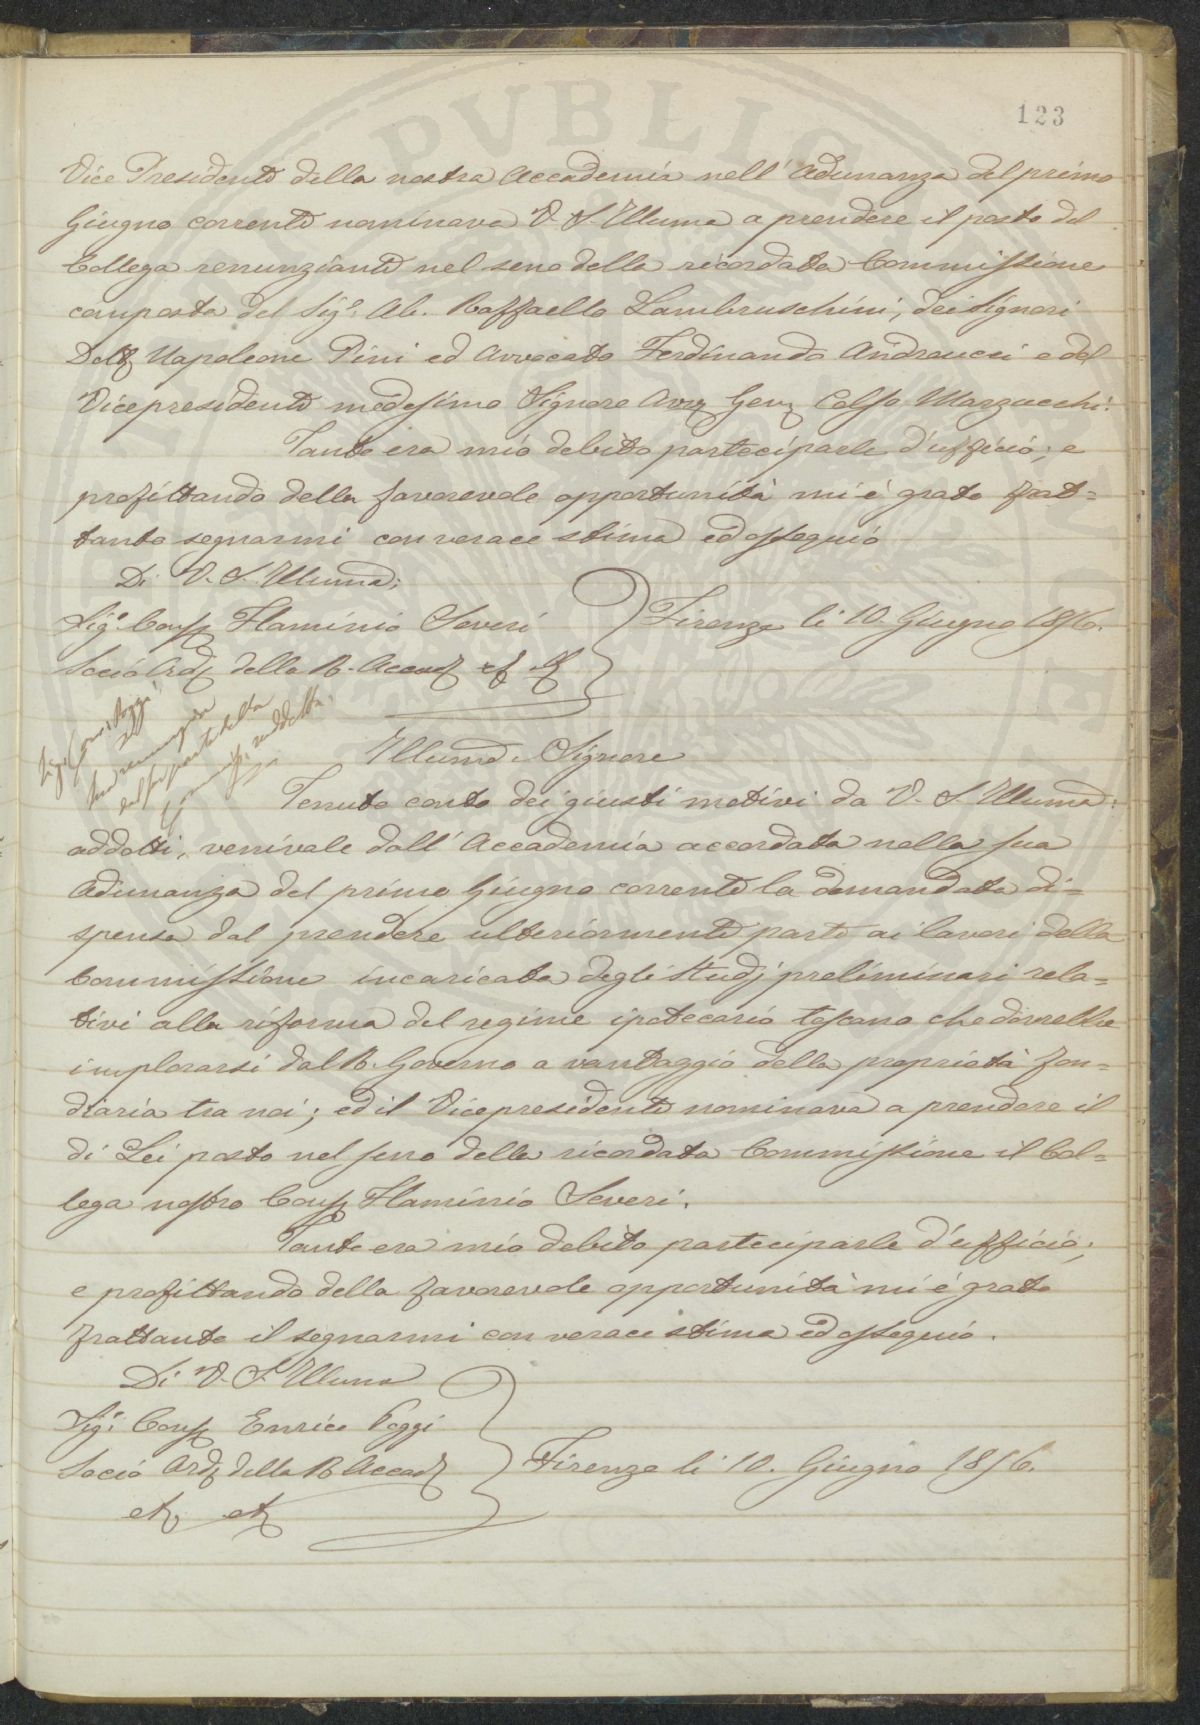 123
Vice Presidente della nostra Accademia nell' Adunanza del primo
Giugno corrente nominava V. S. Illuma a prendere il posto del
Collega renunziante nel seno della ricordata Commissione
composta del Sigr. Ab. Raffaello Lambruschini, dei Signori
Dott Napoleone Pini ed Avvocato Ferdinando Andreucci e del
Vicepresidente medesimo Signore Avv Gen Celso Marzucchi.
Tanto era mio debito parteciparle d'ufficio; e
profittando della favorevole opportunità mi è grato frat=
tanto segnarmi con verace stima ed ossequio
Di V. S. Illuma:
Sigr. Cons Flaminio Severi
Socio Ord della R. Accad
Firenze li 10 Giugno 1856.
Sigr Cons Poggi
sua renunzia
dal far parte della
Commiss. suddetta.
Illumo. Signore
Tenuto conto dei giusti motivi da V. S. Illuma:
addotti, venivale dall' Accademia accordata nella sua
Adunanza del primo Giugno corrente la domandata di=
spensa dal prendere ulteriormente parte ai lavori della
Commissione incaricata degli studj preliminari rela=
tivi alla riforma del regime ipotecario toscano che dovrebbe
implorarsi dal R. Governo a vantaggio della proprietà fon=
diaria tra noi; ed il Vicepresidente nominava a prendere il
di Lei posto nel seno della ricordata Commissione il Col=
lega nostro Cons Flaminio Severi.
Tanto era mio debito parteciparle d'ufficio;
e profittando della favorevole opportunità mi è grato
frattanto il segnarmi con verace stima ed ossequio.
Di V. S. Illuma
Sigr. Cons Enrico Poggi
Socio Ord della R. Accad
Firenze li 10. Giugno 1856.